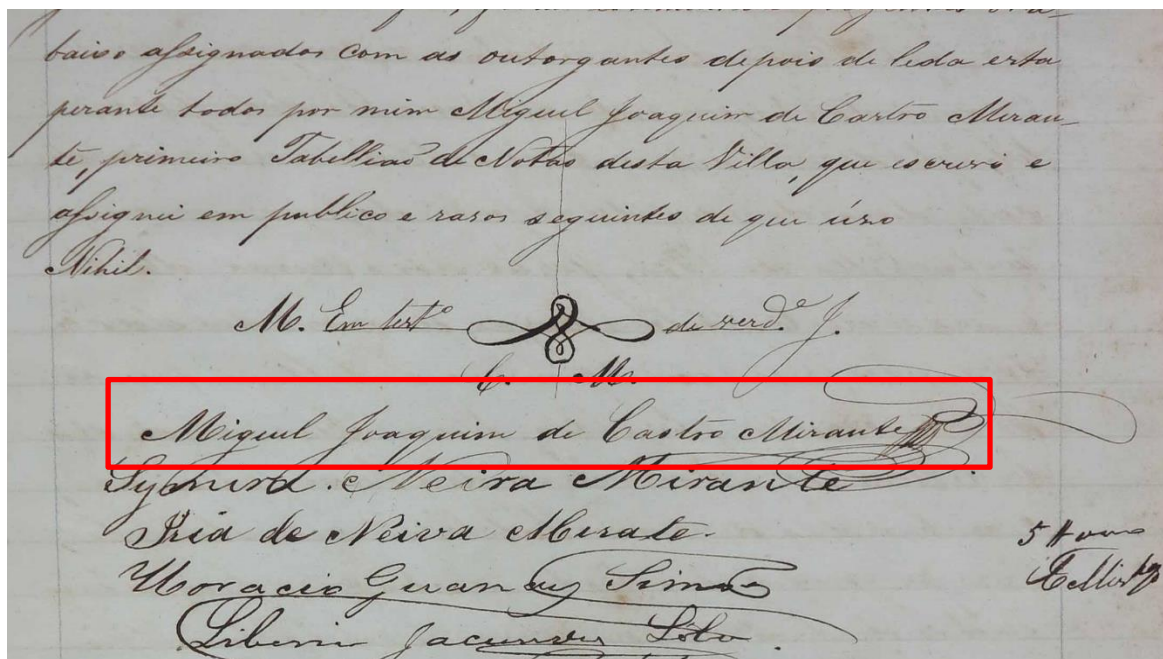 baixo assignados com as outorgantes depois de leda esta
perante todos por mim Miguel Joaquim de Castro Miran-
te, primeiro Tabelliaõ de Notas desta Villa, que escrevi e
assignei em publico e rasos seguintes de que úso
Nihil.
M. Em testº de verd.e J.
C. M.
Miguel Joaquim de Castro Mirante
Neiva Mirante
Iria de Neiva Mirate.
Horacio Simo
Liberio Jacundes Lôbo